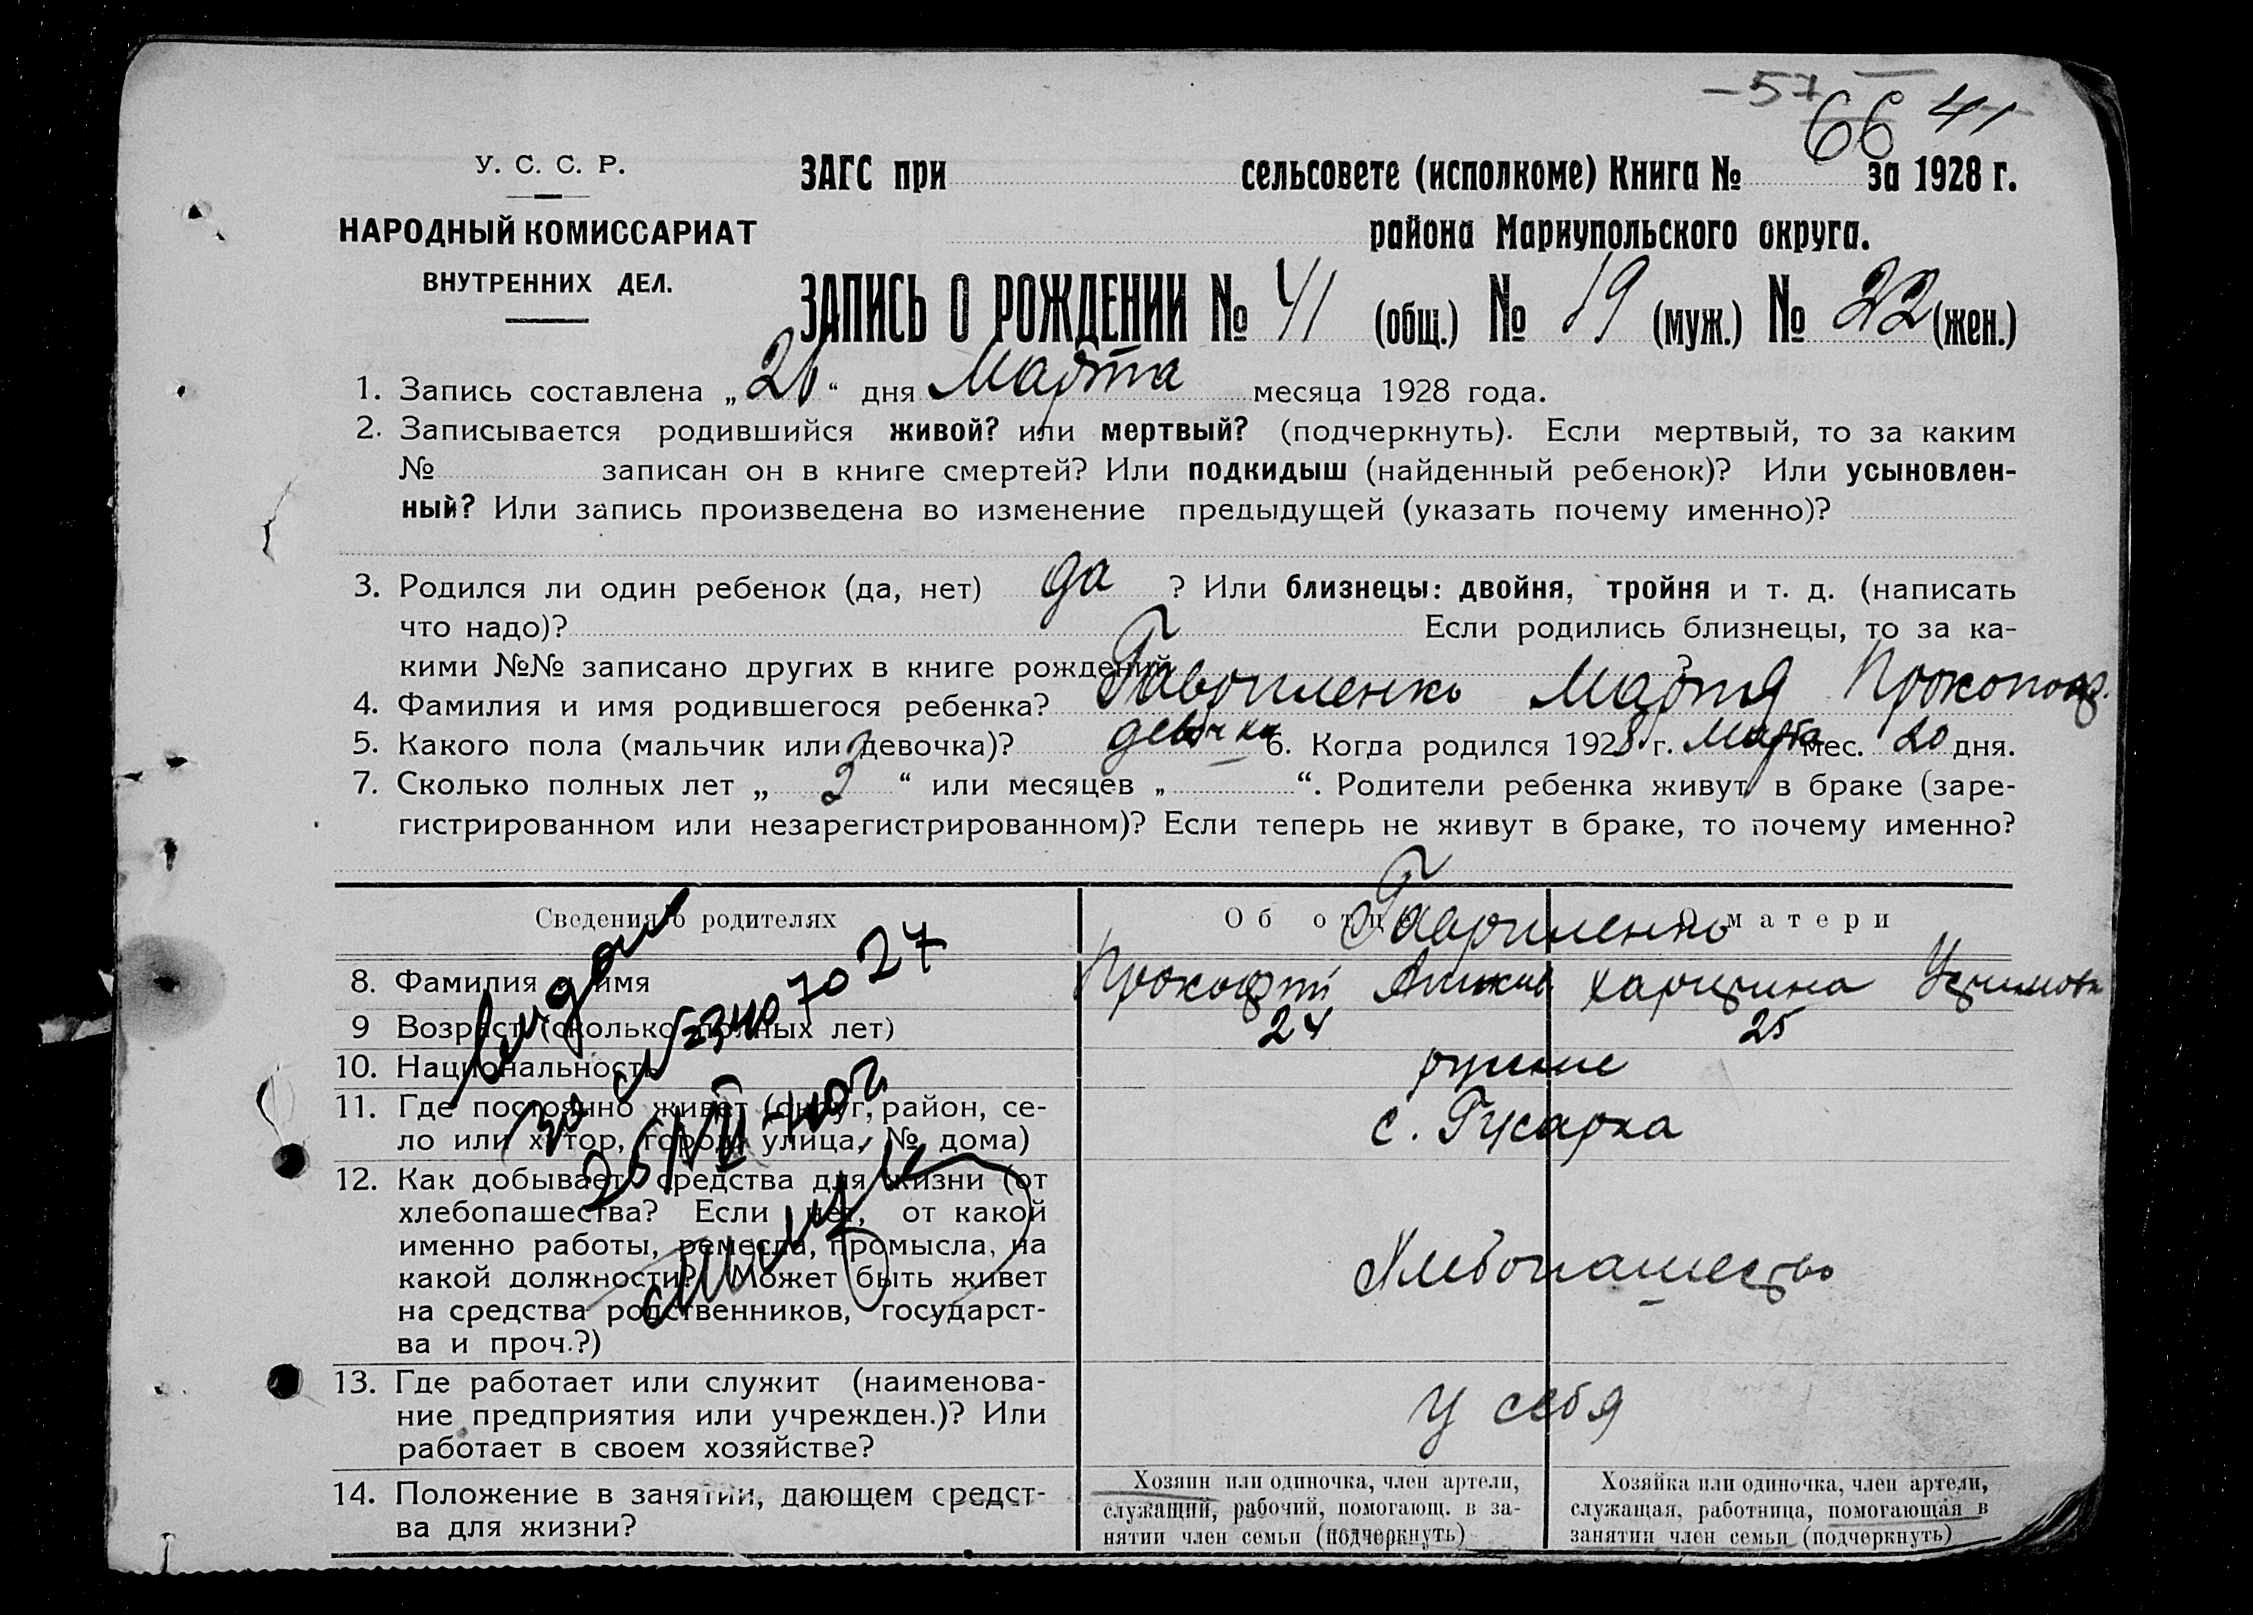 — 57 —
66 41
У. С. С. Р.
НАРОДНЫЙ КОМИССАРИАТ
ВНУТРЕННИХ ДЕЛ.
ЗАГС при сельсовете (исполкоме) Книга № за 1928 г.
района Мариупольского округа.
ЗАПИСЬ О РОЖДЕНИИ № 41 (общ.) № 19 (муж.) № 22 (жен.)
1. Запись составлена „ 26 “ дня Марта месяца 1928 года.
2. Записывается родившийся живой? или мертвый? (подчеркнуть). Если мертвый, то за каким
№ записан он в книге смертей? Или подкидыш (найденный ребенок)? Или усыновлен-
ный? Или запись произведена во изменение предыдущей (указать почему именно)?
3. Родился ли один ребенок (да, нет) да ? Или близнецы: двойня, тройня и т. д. (написать
что надо)? Если родились близнецы, то за ка-
кими №№ записано других в книге рождений ?
4. Фамилия и имя родившегося ребенка? Гавриленко Мария Прокопов.
5. Какого пола (мальчик или девочка)? девочка 6. Когда родился 1928 г. Марта мес. 20 дня.
7. Сколько полных лет „ 2 “ или месяцев „ “. Родители ребенка живут в браке (заре-
гистрированном или незарегистрированном)? Если теперь не живут в браке, то почему именно?
Сведения о родителях Об отце О матери
Гавриленко
8. Фамилия и имя Прокофий Харитина
9 Возраст (сколько полных лет) 24 25
10. Национальность руские
11. Где постоянно живет (округ, район, се-
ло или хутор, город, улица, № дома) с. Гусарка
12. Как добывает средства для жизни (от
хлебопашества? Если нет, от какой
именно работы, ремесла, промысла, на
какой должности? Может быть живет
на средства родственников, государст-
ва и проч.?)
Хлебопашество
13. Где работает или служит (наименова-
ние предприятия или учрежден.)? Или
работает в своем хозяйстве?
у себя
14. Положение в занятии, дающем средст-
ва для жизни?
Хозяин или одиночка, член артели,
служащий, рабочий, помогающ. в за-
нятии член семьи (подчеркнуть)
Хозяйка или одиночка, член артели,
служащая, работница, помогающая в
занятии член семьи (подчеркнуть)